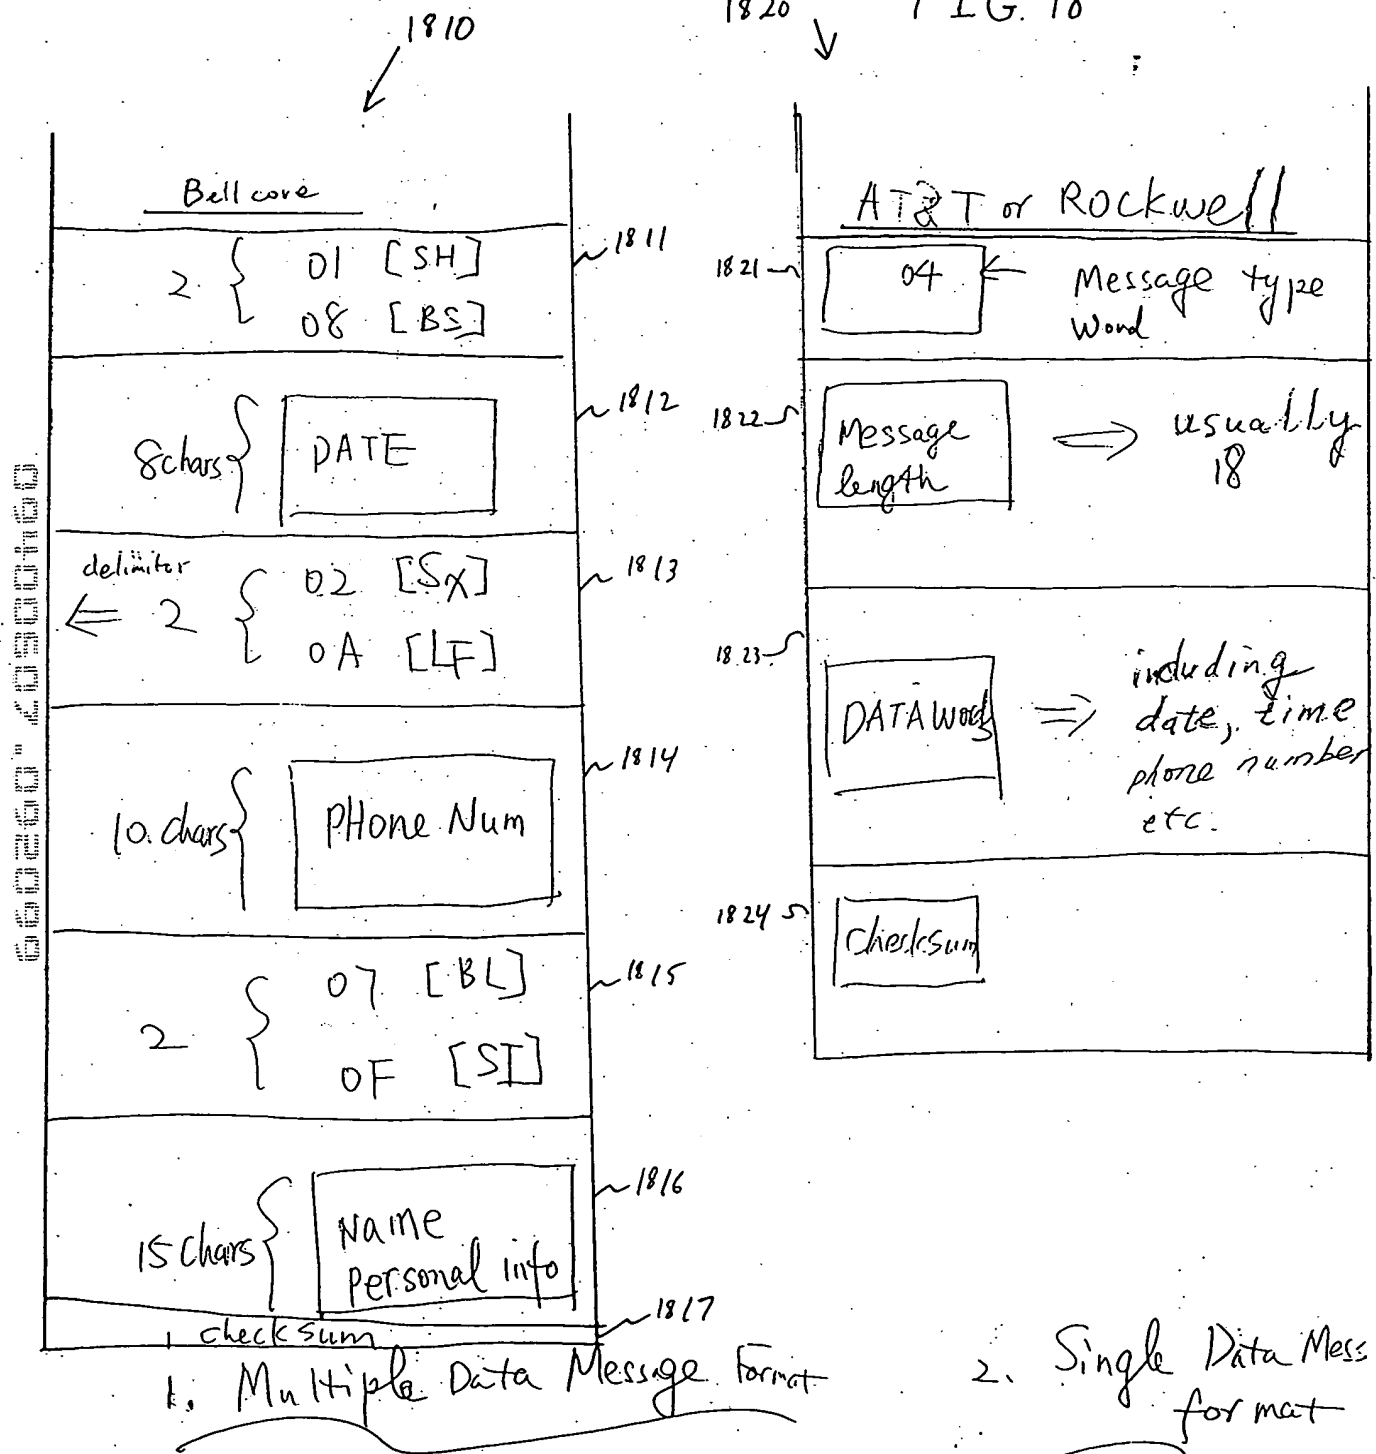 1810
1820
FIG. 18
Bellcore
2 { 01 [SH]
08 [BS]
1811
8 chars { DATE
1812
delimitor
⇐ 2 { 02 [SX]
0A [LF]
1813
10. chars { PHone Num
1814
2 { 07 [BL]
0F [SI]
1815
15 Chars { Name
personal info
1816
1 checksum
1817
1. Multiple Data Message Format
AT&T or Rockwell
1821
04 ← Message type
Word
1822
Message
length
⇒ usually
18
1823
DATA Words ⇒ including
date, time
phone number
etc.
1824
checksum
2. Single Data Mess
format